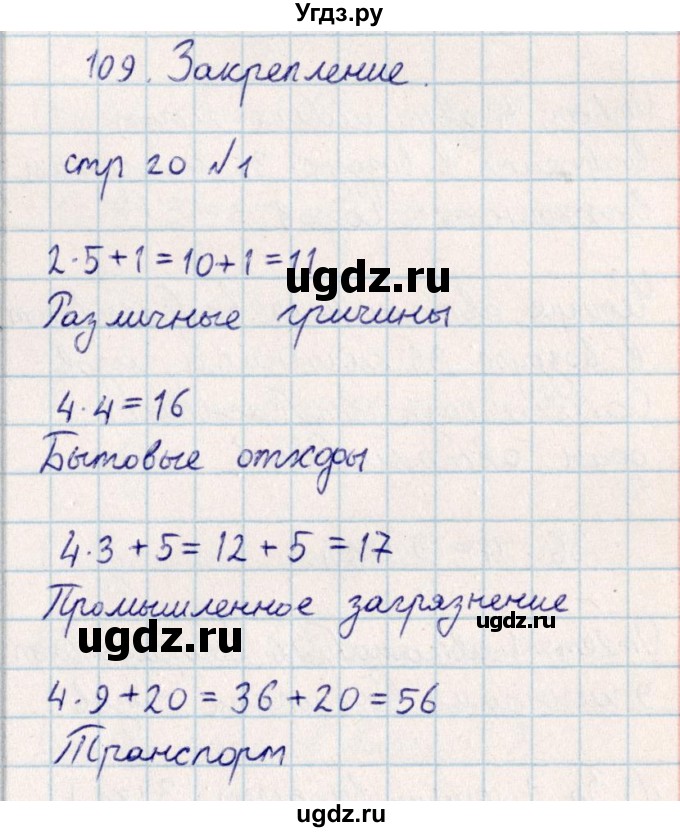 Угдз.ру
109. Закрепление.
стр 20 №1
2·5+1=10+1=11
ugdz.ru
Различные причины
4·4=16
Бытовые отходы
4·3+5=12+5=17
Промышленное загрязнение
ugdz.ru
ugdz.ru
4·9+20=36+20=56
Транспорт
ugdz.ru